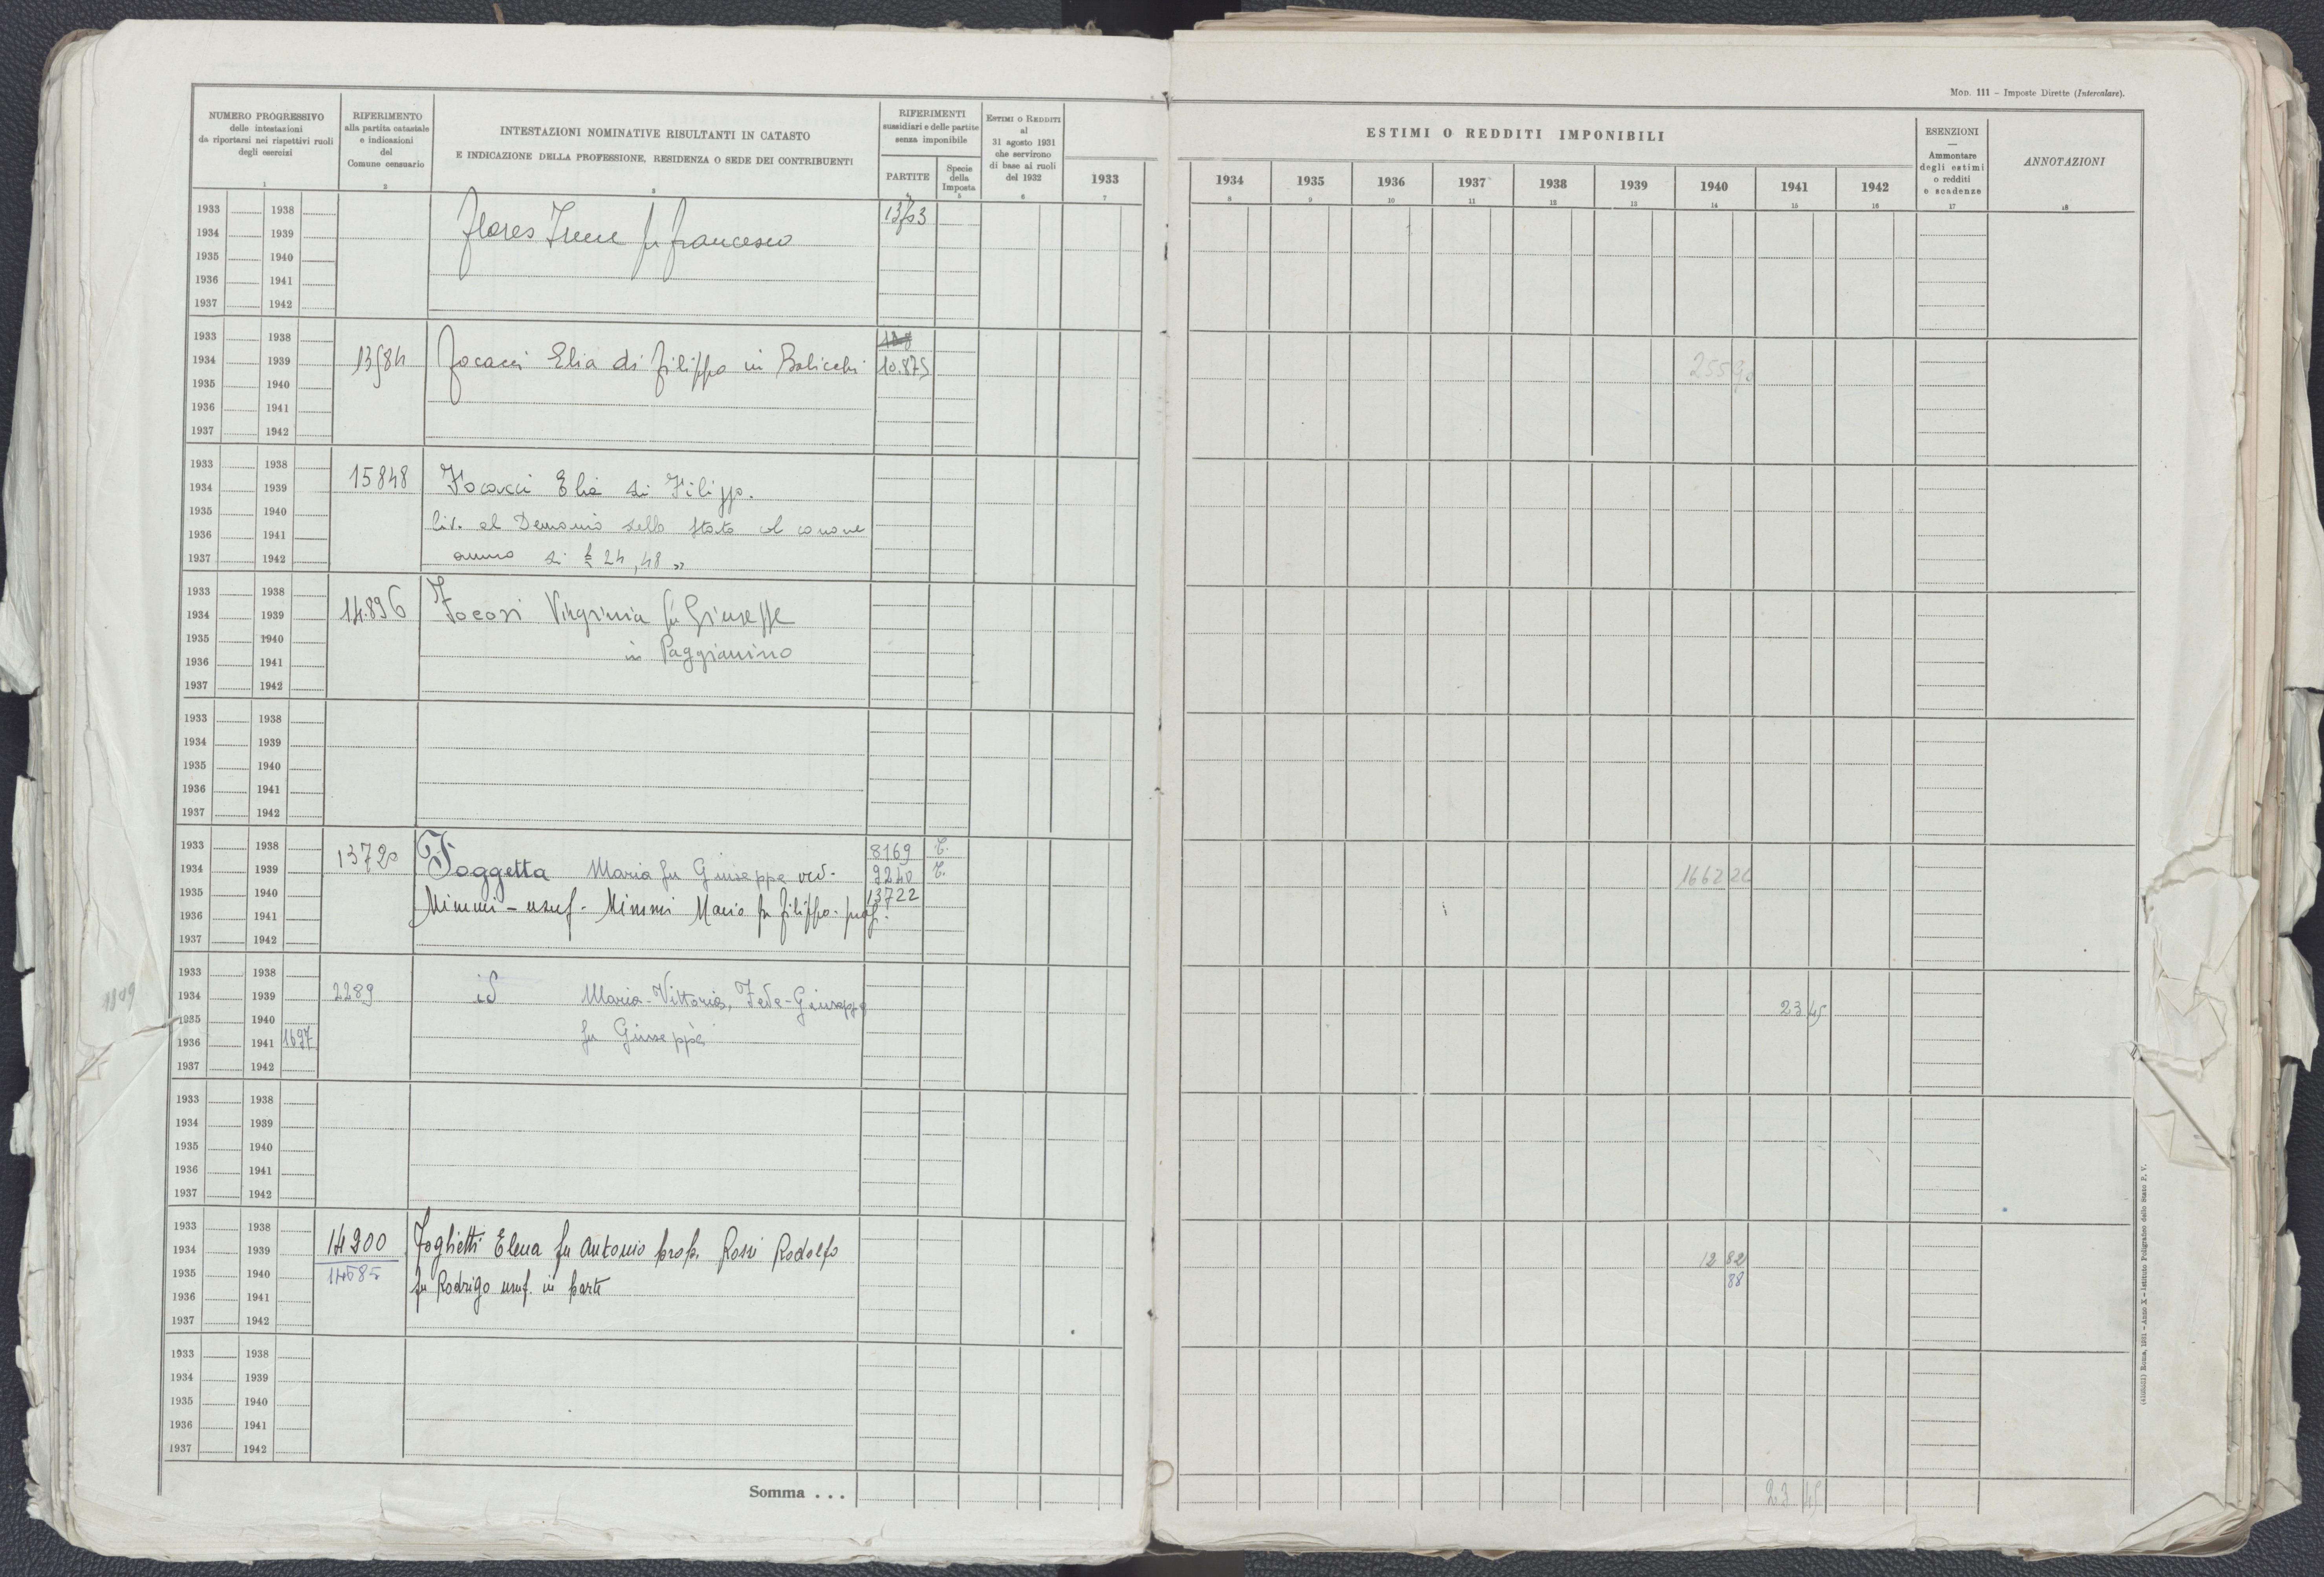 Mod. 111 – Imposte Dirette (Intercalare).
NUMERO PROGRESSIVO
delle intestazioni
da riportarsi nei rispettivi ruoli
degli esercizi
1
RIFERIMENTO
alla partita catastale
e indicazioni
del
Comune censuario
2
INTESTAZIONI NOMINATIVE RISULTANTI IN CATASTO
E INDICAZIONE DELLA PROFESSIONE, RESIDENZA O SEDE DEI CONTRIBUENTI
3
RIFERIMENTI
sussidiari e delle partite
senza imponibile
PARTITE
4
Specie
della
Imposta
5
ESTIMI O REDDITI
al
31 agosto 1931
che servirono
di base ai ruoli
del 1932
6
1933
7
ESTIMI O REDDITI IMPONIBILI
1934 1935 1936 1937 1938 1939 1940 1941 1942
8 9 10 11 12 13 14 15 16
ESENZIONI
—
Ammontare
degli estimi
o redditi
e scadenze
17
ANNOTAZIONI
18
1933 1938
1934 1939 Flores Irene fu Francesco
1935 1940
1936 1941
1937 1942
1933 1938
1934 1939 13584 Focacci Elia di Filippo in 10.875 2559
1935 1940
1936 1941
1937 1942
1933 1938
1934 1939 15848 Focacci Elia di Filippo.
1935 1940
1936 1941 liv. al Demanio dello Stato col canone
1937 1942 annuo di £ 24,48 "
1933 1938
1934 1939 14.896 Focosi Virginia fu Giuseppe
1935 1940
1936 1941 in Paggianino
1937 1942
1933 1938
1934 1939
1935 1940
1936 1941
1937 1942
1933 1938 13720 8169 T.
1934 1939 Foggetta Maria fu Giuseppe ved. 9240 T. 1662 26
1935 1940 13722
1936 1941 Mimmi - usuf. Mimmi Mario fu Filippo. prop.
1937 1942
1933 1938
1934 1939 2289 id Maria-Vittoria, Fede-Giuseppa 23 45
1935 1940
1936 1941 1697 fu Giuseppe
1937 1942
1933 1938
1934 1939
1935 1940
1936 1941
1937 1942
1933 1938
1934 1939 14200 Foglietti Elena fu Antonio prop. Rossi Rodolfo 12 82
1935 1940 14585 fu Rodrigo usuf. in parte 88
1936 1941
1937 1942
1933 1938
1934 1939
1935 1940
1936 1941
1937 1942
Somma . . . 23 45
Roma, 1931 – Anno X – Istituto Poligrafico dello Stato P. V.